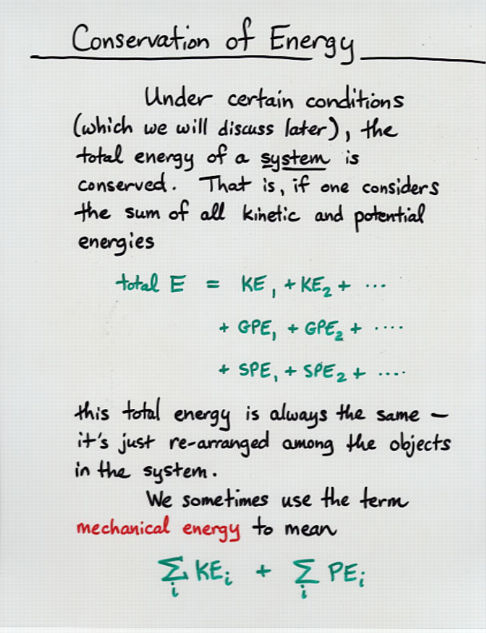 Conservation of Energy
Under certain conditions
(which we will discuss later), the
total energy of a system is
conserved. That is, if one considers
the sum of all kinetic and potential
energies
total E = KE₁ + KE₂ + ...
+ GPE₁ + GPE₂ + ....
+ SPE₁ + SPE₂ + ....
this total energy is always the same –
it's just re-arranged among the objects
in the system.
We sometimes use the term
mechanical energy to mean
∑ᵢ KEᵢ + ∑ᵢ PEᵢ